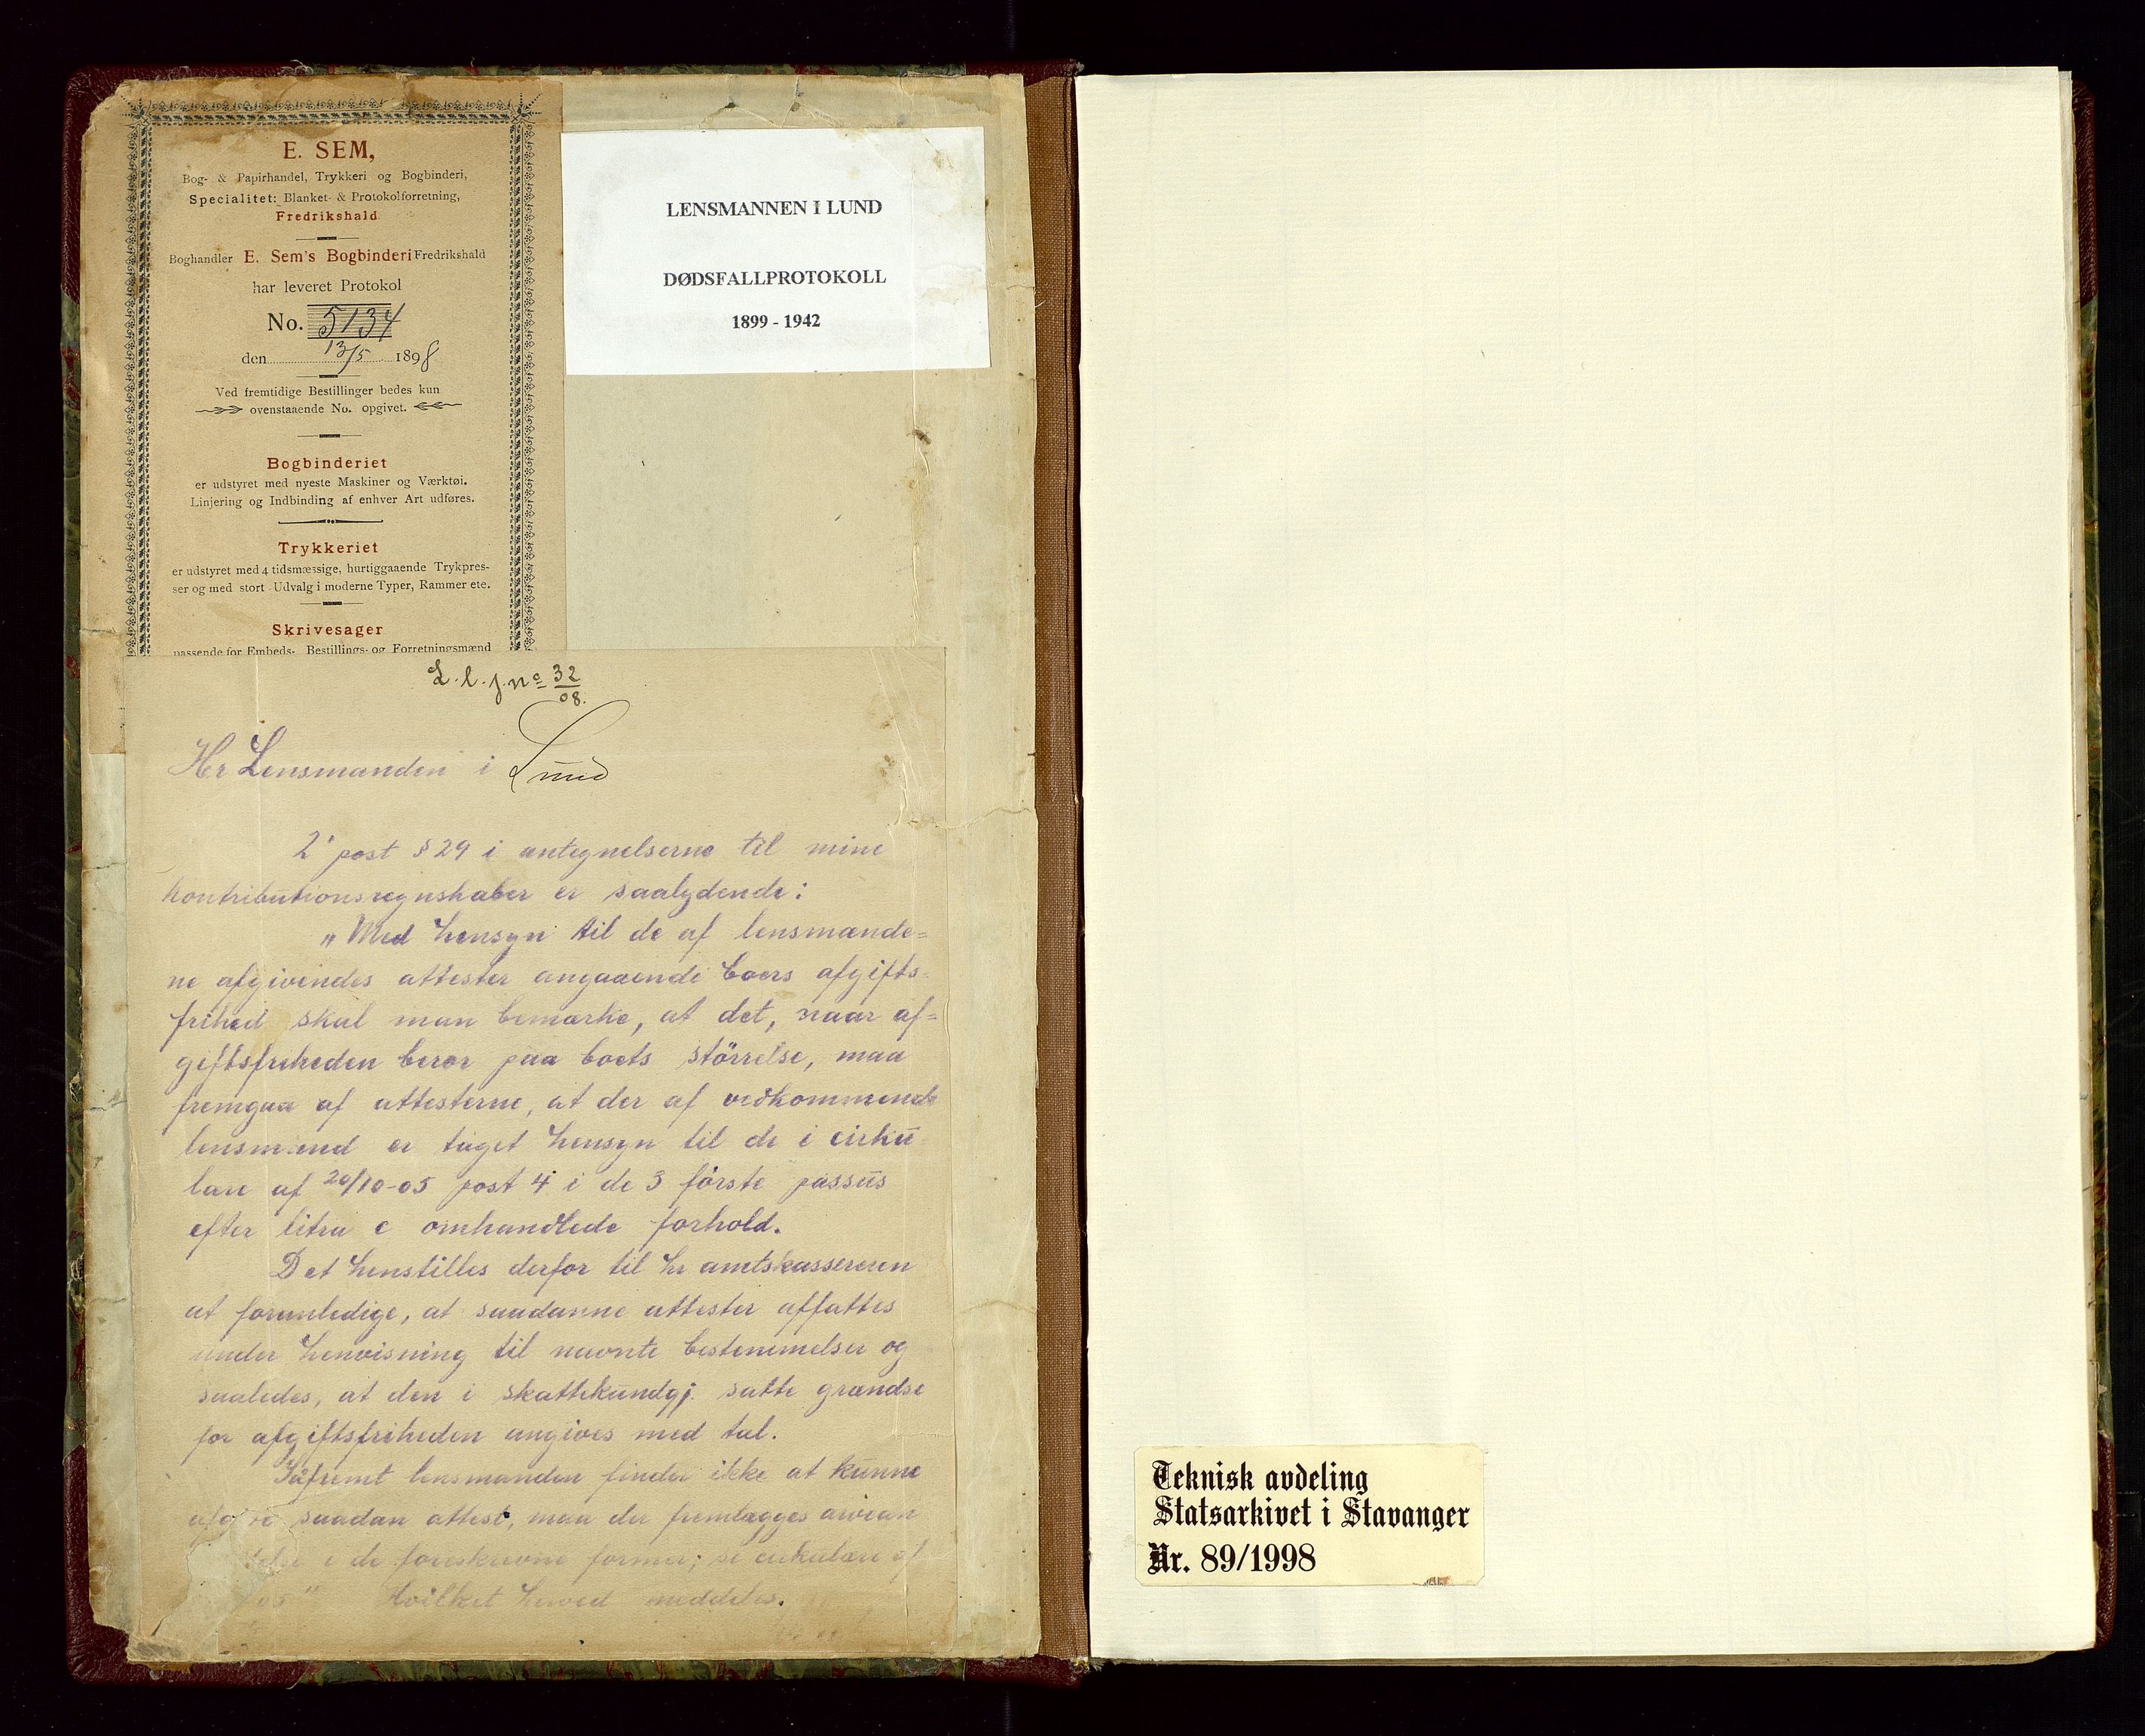 E. SEM,
Bog- & Papirhandel, Trykkeri og Bogbinderi,
Specialitet: Blanket- & Protokolforretning,
Fredrikshald
Boghandler E. Sem's Bogbinderi Fredrikshald
har leveret Protokol
No. 5134
den 13/5 1898
Ved fremtidige Bestillinger bedes kun
ovenstaaende No. opgivet.
Bogbinderiet
er udstyret med nyeste Maskiner og Værktøi.
Linjering og Indbinding af enhver Art udføres.
Trykkeriet
er udstyret med 4 tidsmæssige, hurtiggaaende Trykpres-
ser og med stort Udvalg i moderne Typer, Rammer etc.
Skrivesager
passende for Embeds-, Bestillings- og Forretningsmænd
LENSMANNEN I LUND
DØDSFALLPROTOKOLL
1899 - 1942
L. l. j. no 32/08.
Hr Lensmanden i Lund
2' post § 29 i antegnelserne til mine
kontributionsregnskaber er saalydende:
„Med hensyn til de af lensmænde=
ne afgivendes attester angaaende boers afgifts-
frihed skal man bemærke, at det, naar af=
giftsfriheden beror paa boets större​lse, maa
fremgaa af attesterne, at der af vedkommende
lensmand er taget hensyn til de i cirku-
lære af 20/10-05 post 4 i de 3 förste passus
efter litra c omhandlede forhold.
Det henstilles derfor til hr amtskassereren
at foranledige, at saadanne attester affattes
under henvisning til nævnte bestemmelser og
saaledes, at den i skattekundgj. satte grændse
for afgiftsfriheden angives med tal.
Såfremt lensmanden finder ikke at kunne
afgive saadan attest, maa der fremlægges
i de foreskrevne former; se cirkulære af
05" Hvilket herved meddeles.
Teknisk avdeling
Statsarkivet i Stavanger
Nr. 89/1998